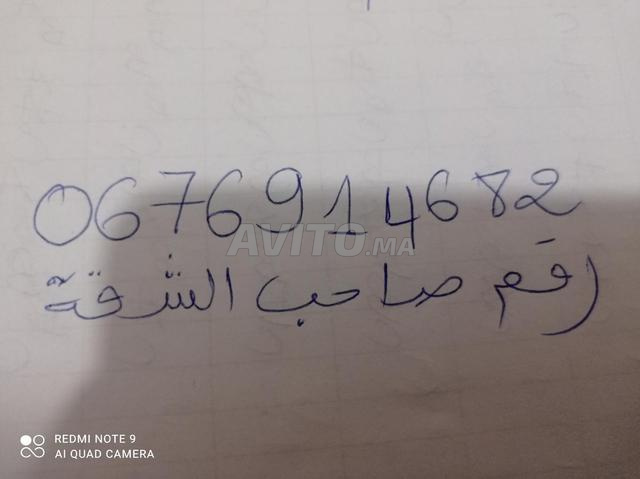 0676914682
AVITO.MA
رقم صاحب الشقة
REDMI NOTE 9
AI QUAD CAMERA